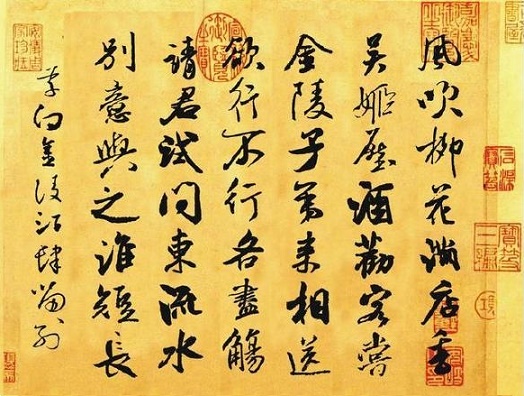 風吹柳花滿店香
吳姬壓酒勸客嘗
金陵子弟來相送
欲行不行各盡觴
請君試問東流水
別意與之誰短長
李白金陵酒肆留別